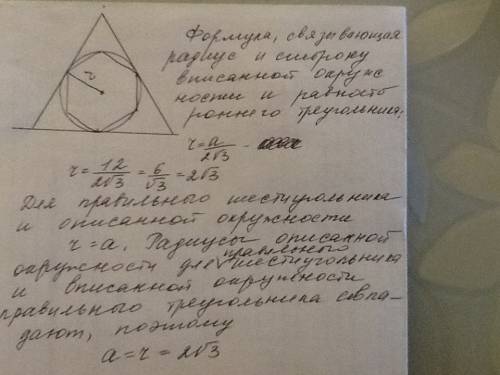 r
Формула, связывающая
радиус и сторону
вписанной окруж
ности и равносто
роннего треугольника:
r = a/2√3 -
r = 12/2√3 = 6/√3 = 2√3
Для правильного шестиугольника
и описанной окружности
r = a. Радиусы описанной
окружности для правильного шестиугольника
и вписанной окружности
правильного треугольника совпа-
дают, поэтому
a = r = 2√3